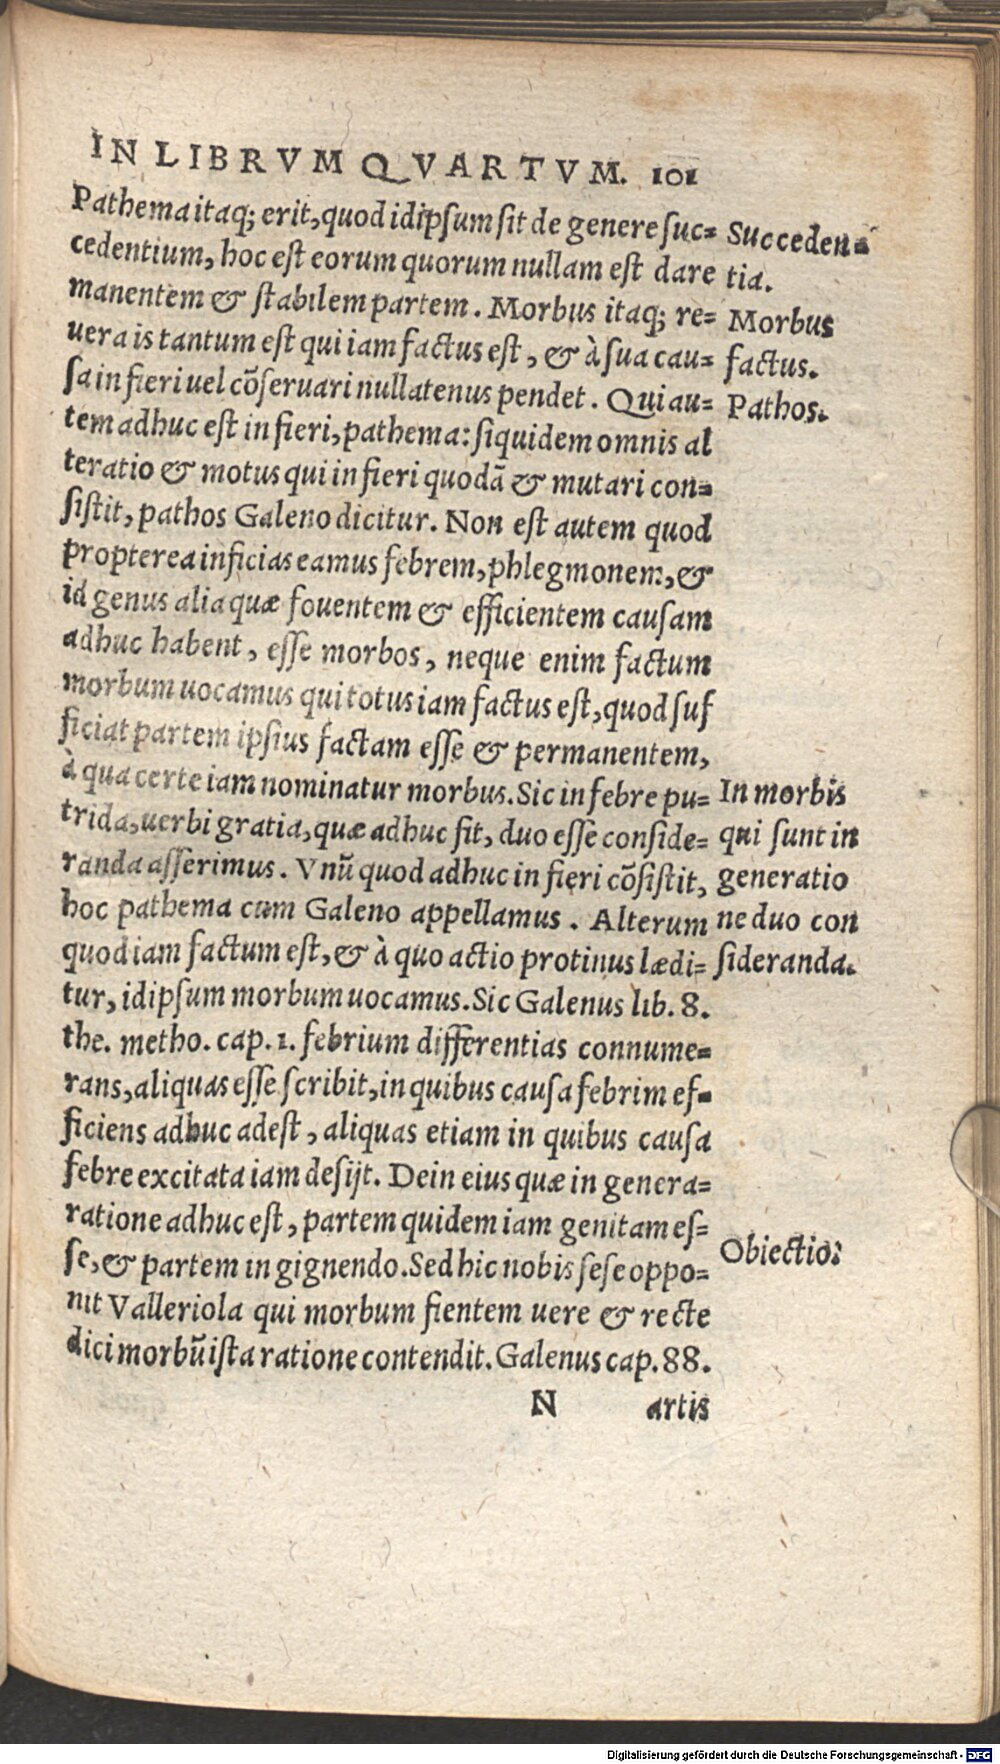 IN LIBRVM QVARTVM. 101
Pathema itaq; erit, quod idipsum sit de genere suc-
cedentium, hoc est eorum quorum nullam est dare
manentem & stabilem partem. Morbus itaq; re-
uera is tantum est qui iam factus est, & à sua cau-
sa in fieri uel cõseruari nullatenus pendet. Qui au-
tem adhuc est in fieri, pathema: siquidem omnis al
teratio & motus qui in fieri quodã & mutari con-
sistit, pathos Galeno dicitur. Non est autem quod
propterea inficias eamus febrem, phlegmonem, &
id genus alia quæ fouentem & efficientem causam
adhuc habent, esse morbos, neque enim factum
morbum uocamus qui totus iam factus est, quod suf
ficiat partem ipsius factam esse & permanentem,
à qua certe iam nominatur morbus. Sic in febre pu-
trida, uerbi gratia, quæ adhuc fit, duo esse conside-
randa asserimus. Vnũ quod adhuc in fieri cõsistit,
hoc pathema cum Galeno appellamus. Alterum
quod iam factum est, & à quo actio protinus lædi-
tur, idipsum morbum uocamus. Sic Galenus lib. 8.
the. metho. cap. 1. febrium differentias connume-
rans, aliquas esse scribit, in quibus causa febrim ef-
ficiens adhuc adest, aliquas etiam in quibus causa
febre excitata iam desijt. Dein eius quæ in genera-
ratione adhuc est, partem quidem iam genitam es-
se, & partem in gignendo. Sed hic nobis sese oppo-
nit Valleriola qui morbum fientem uere & recte
dici morbũ ista ratione contendit. Galenus cap. 88.
N artis
Succeden-
tia.
Morbus
factus.
Pathos.
In morbis
qui sunt in
generatio
ne duo con
sideranda.
Obiectio:
Digitalisierung gefördert durch die Deutsche Forschungsgemeinschaft - DFG